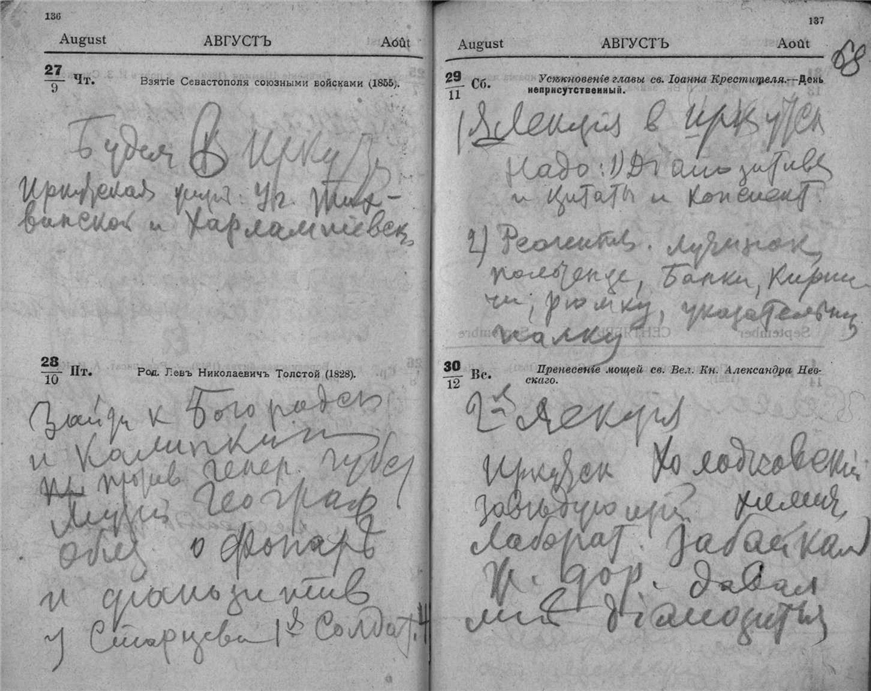 136
August АВГУСТЪ Août
27/9 Чт. Взятіе Севастополя союзными войсками (1855).
Будем В Ирку
Иркутская
винской и Харлампіевск
28/10 Пт. Род. Левъ Николаевичъ Толстой (1828).
Зайди к Богородск
и Калинкин
против генер. губер
Музей Географ
Общ о фонарѣ
и діапозитив
у Старцева 1я Солдат. 4
137
68
August АВГУСТЪ Août
29/11 Сб. Усѣкновеніе главы св. Іоанна Крестителя.—День
неприсутственный.
1я Лекция в Иркутск
Надо: 1) Діапозитивы
и цитаты и конспект.
2) лучинок,
полотенце, Банки, Кирпи-
чи, рюмку, указательну
палку
30/12 Вс. Пренесеніе мощей св. Вел. Кн. Александра Нев-
скаго.
2я Лекция
Иркутск Холодковский
завѣдующій химич
Лаборат. Забайкал
ж. дор. давал
мнѣ діапозитивы